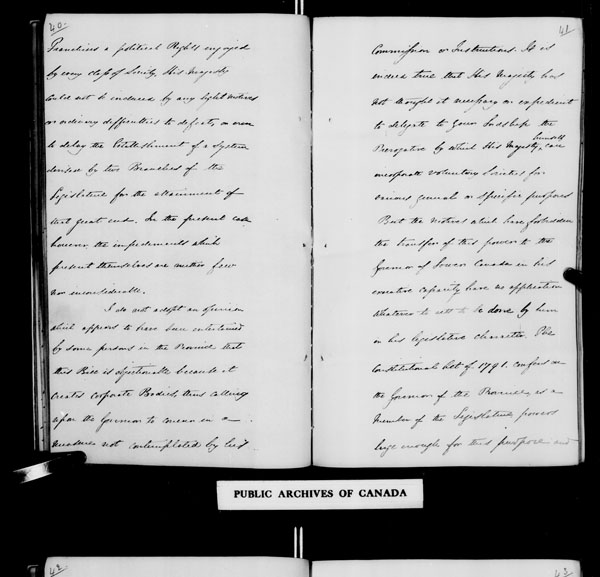 40.
Franchises & political Rights enjoyed
by every class of Society His Majesty
could not be induced by any light motives
or ordinary difficulties to defeat, or even
to delay the Establishment of a System
devised by two Branches of the
Legislature for the attainment of
that great end. In the present case
however the impediments which
present themselves are neither few
nor inconsiderable.
I do not adopt an opinion
which appears to have been entertained
by some persons in the Province that
this Bill is objectionable because it
creates corporate Bodies, thus calling
upon the Governor to concur in a
measure not contemplated by his
41
Commission or Instructions. It is
indeed true that His Majesty has
not thought it necessary or expedient
to delegate to Your Lordship the
Prerogative by which His Majesty himself can
incorporate voluntary Societies for
various general or specific purposes
But the motives which have forbidden
the transfer of this power to the
Governor of Lower Canada in his
executive capacity have no application
whatever to acts to be done by him
in his legislative character. The
Constitutional Act of 1791. confers on
the Governor of the Province, as a
Member of the Legislature, powers
large enough for this purpose and
PUBLIC ARCHIVES OF CANADA
42
43